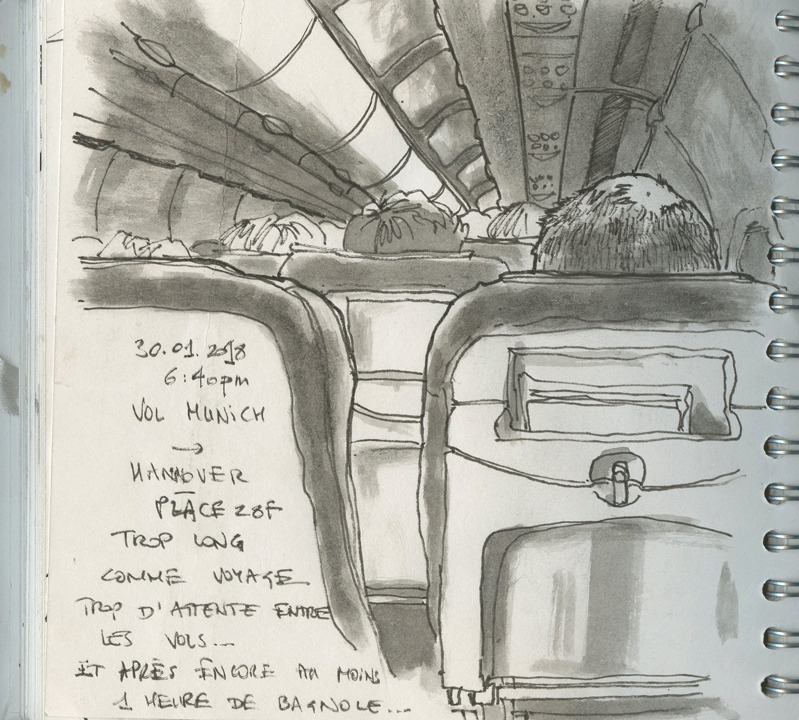 30.01.2018
6:40pm
VOL MUNiCH
→
HANNOVER
PLACE 28F
TROP LONG
COMME VOYAGE
TROP D'ATTENTE ENTRE
LES VOLS...
ET APRÈS ENCORE AU MOINS
1 HEURE DE BAGNOLE...